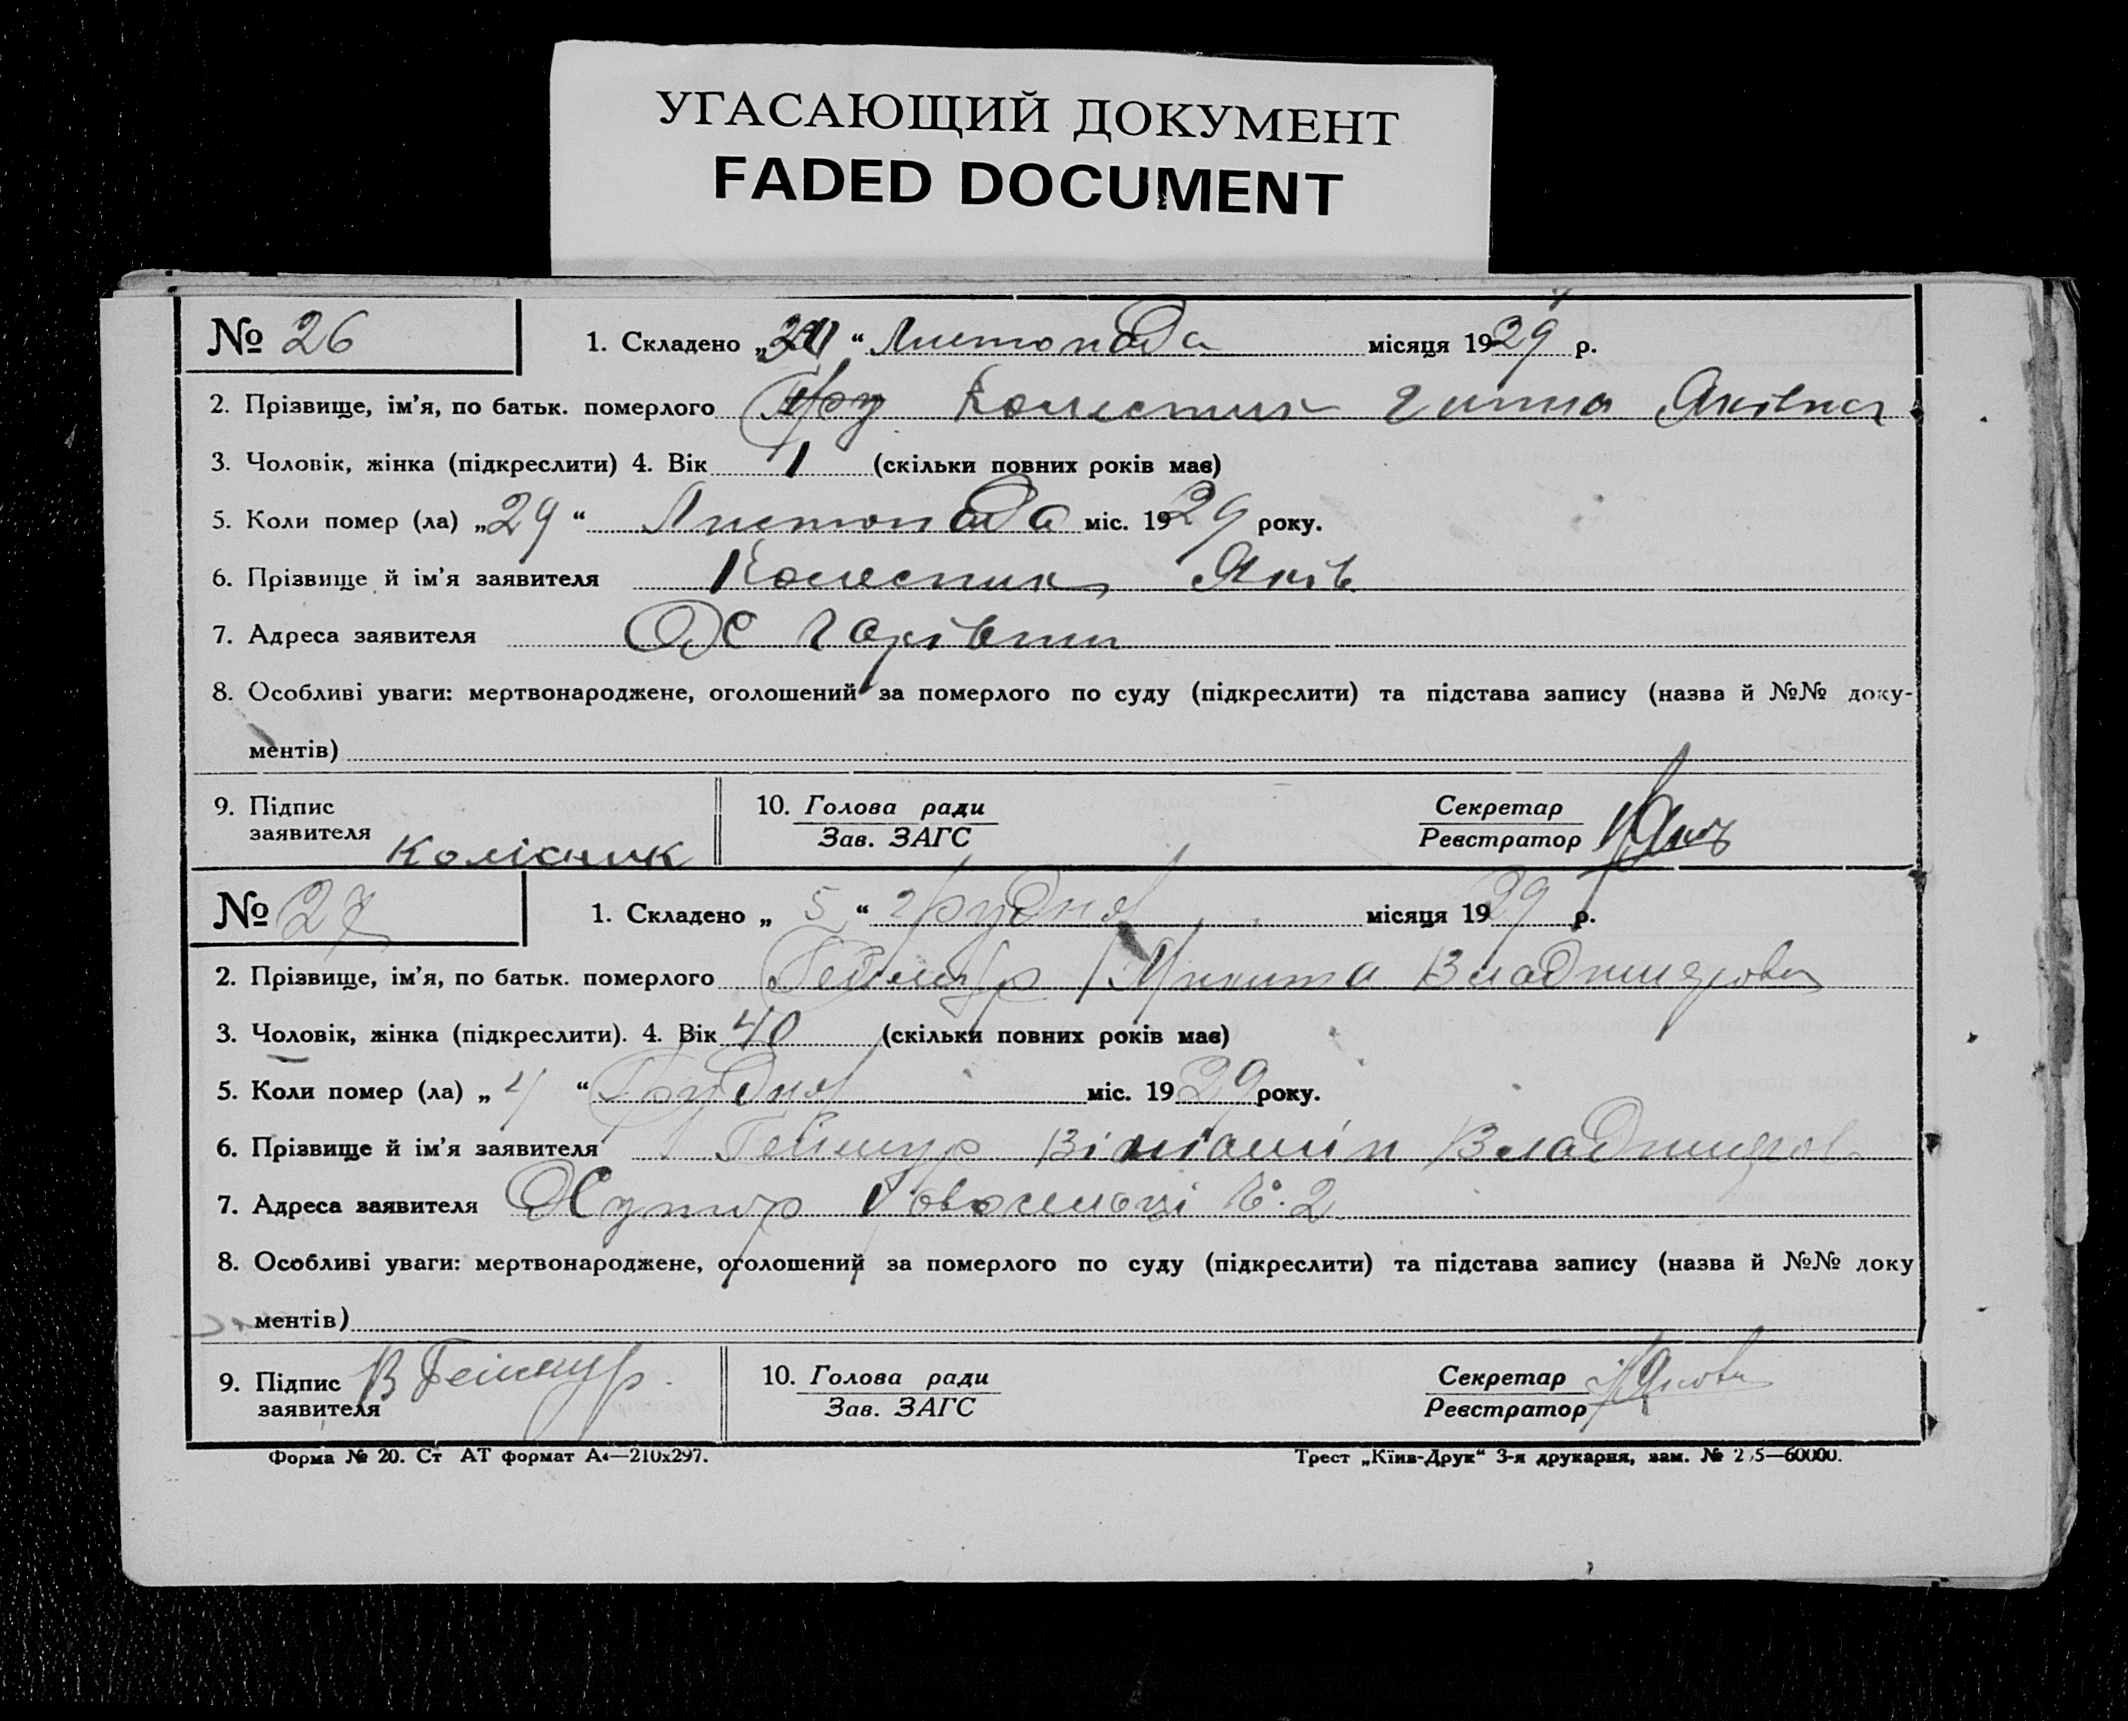 УГАСАЮЩИЙ ДОКУМЕНТ
FADED DOCUMENT
№ 26
1. Складено „ “ Листопада місяця 1929 р.
2. Прізвище, ім’я, по батьк. померлого Колесник Яківна
3. Чоловік, жінка (підкреслити) 4. Вік 1 (скільки повних років має)
5. Коли помер (ла) „29“ Листопада міс. 1929 року.
6. Прізвище й ім’я заявителя Колесник Яків
7. Адреса заявителя
8. Особливі уваги: мертвонароджене, оголошений за померлого по суду (підкреслити) та підстава запису (назва й №№ доку-
ментів)
9. Підпис заявителя Колісник
10. Голова ради
Зав. ЗАГС
Секретар
Реєстратор
№ 27
1. Складено „ 5 “ грудня місяця 1929 р.
2. Прізвище, ім’я, по батьк. померлого Геймур Микита Владимирович
3. Чоловік, жінка (підкреслити). 4. Вік 40 (скільки повних років має)
5. Коли помер (ла) „ 4 “ Грудня міс. 1929 року.
6. Прізвище й ім’я заявителя Геймур Владимиров
7. Адреса заявителя Хутор №. 2
8. Особливі уваги: мертвонароджене, оголошений за померлого по суду (підкреслити) та підстава запису (назва й №№ доку
ментів)
9. Підпис заявителя В Геймур.
10. Голова ради
Зав. ЗАГС
Секретар
Реєстратор
Форма № 20. Ст АТ формат А4—210х297.
Трест „Київ-Друк“ 3-я друкарня, зам. № 2 5—60000.